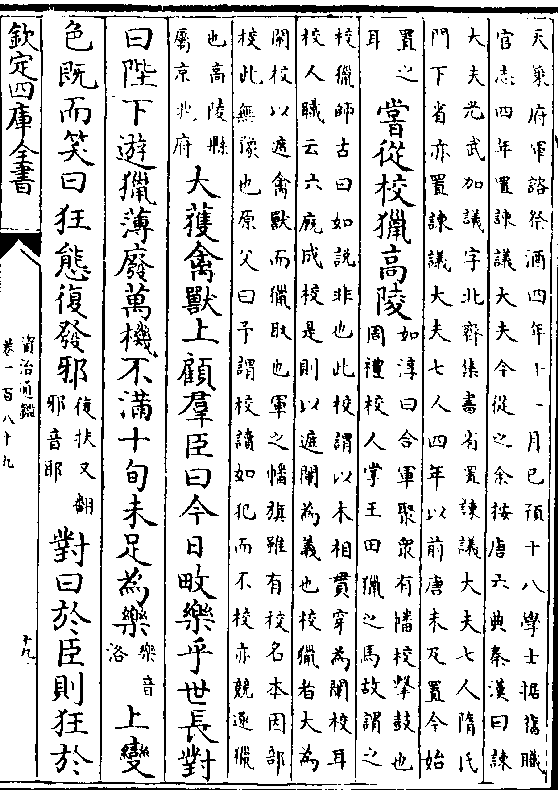 天策府軍諮祭酒四年十一月已預十八學士據舊職
官志四年置諫議大夫今從之余按唐六典秦漢曰諫
大夫光武加議字北齊集書省置諫議大夫七人隋氏
門下省亦置諫議大夫七人四年以前唐未及置今始
置之
耳
嘗從校獵高陵
如淳曰合軍聚衆有幡校擊鼓也
周禮校人掌王田獵之馬故謂之
校獵師古曰如說非也此校謂以木相貫穿為闌校耳
校人職云六廄成校是則以遮闌為義也校獵者大為
闌校以遮禽獸而獵取也軍之幡旗雖有校名本因部
校此無豫也原父曰予謂校讀如犯而不校亦競逐獵
也高陵縣
屬京兆府
大獲禽獸上顧羣臣曰今日畋樂乎世長對
曰陛下遊獵薄廢萬機不滿十旬未足為樂
樂音
洛
上變
色既而笑曰狂態復發邪
復扶又翻
邪音耶
對曰於臣則狂於
欽定四庫全書
資治通鑑
卷一百八十九
十九